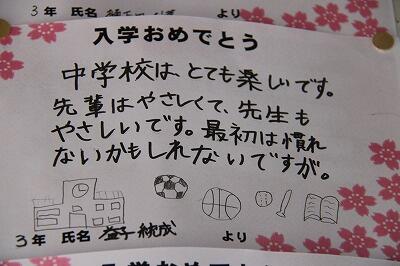 3年 氏名 より
入学おめでとう
中学校は、とても楽しいです。
先輩はやさしくて、先生も
やさしいです。最初は慣れ
ないかもしれないですが。
3年 氏名 益子統成 より
入学おめでとう